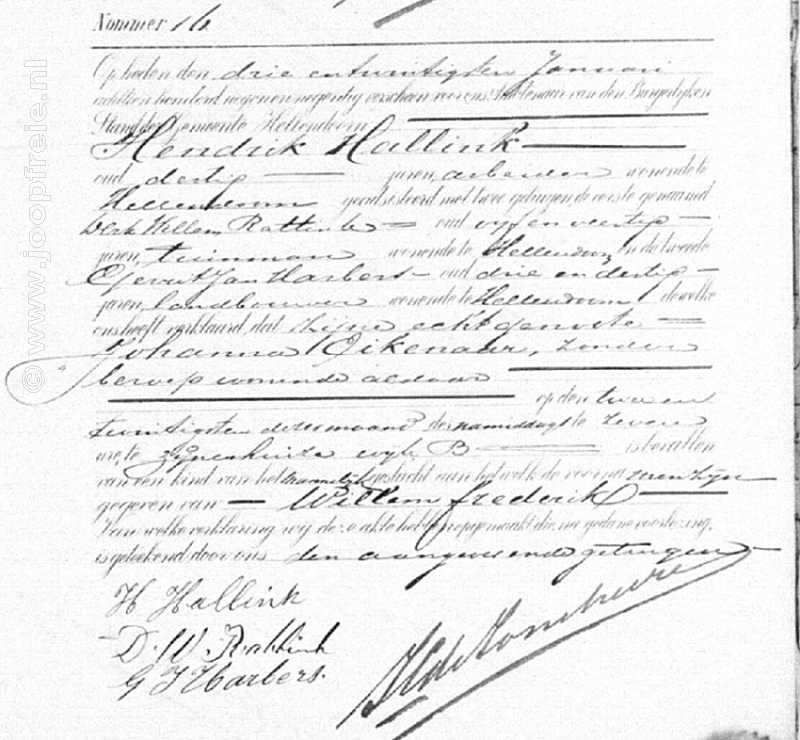 Nummer 16
Op heden den drie en twintigsten Januari
achttien honderd negen en negentig verscheen voor ons Ambtenaar van den Burgerlijken
Stand der Gemeente Hellendoorn
Hendrik Hallink
oud dertig jaren, arbeider wonende te
Hellendoorn geadsisteerd met twee getuigen, de eerste genaamd
Derk Willem Rattink oud vijf en veertig
jaren, tuinman wonende te Hellendoorn en de tweede
Gerrit Jan Harbers oud drie en dertig
jaren, landbouwer wonende te Hellendoorn de welke
ons heeft verklaard, dat zijne echtgenoote
Johanna Eikenaar, zonder
beroep wonende aldaar
op den twee en
twintigsten dezer maand des namiddags te zeven
ure, te zijnen huize wijk B is bevallen
van een kind van het mannelijk geslacht aan het welk de voornamen zijn
gegeven van Willem Frederik
Van welke verklaring wij deze akte hebben opgemaakt, die, na gedane voorlezing,
is geteekend door ons den aangever en de getuigen
H Hallink
D. W. Rattink
G J Harbers.
© www.joopfreie.nl